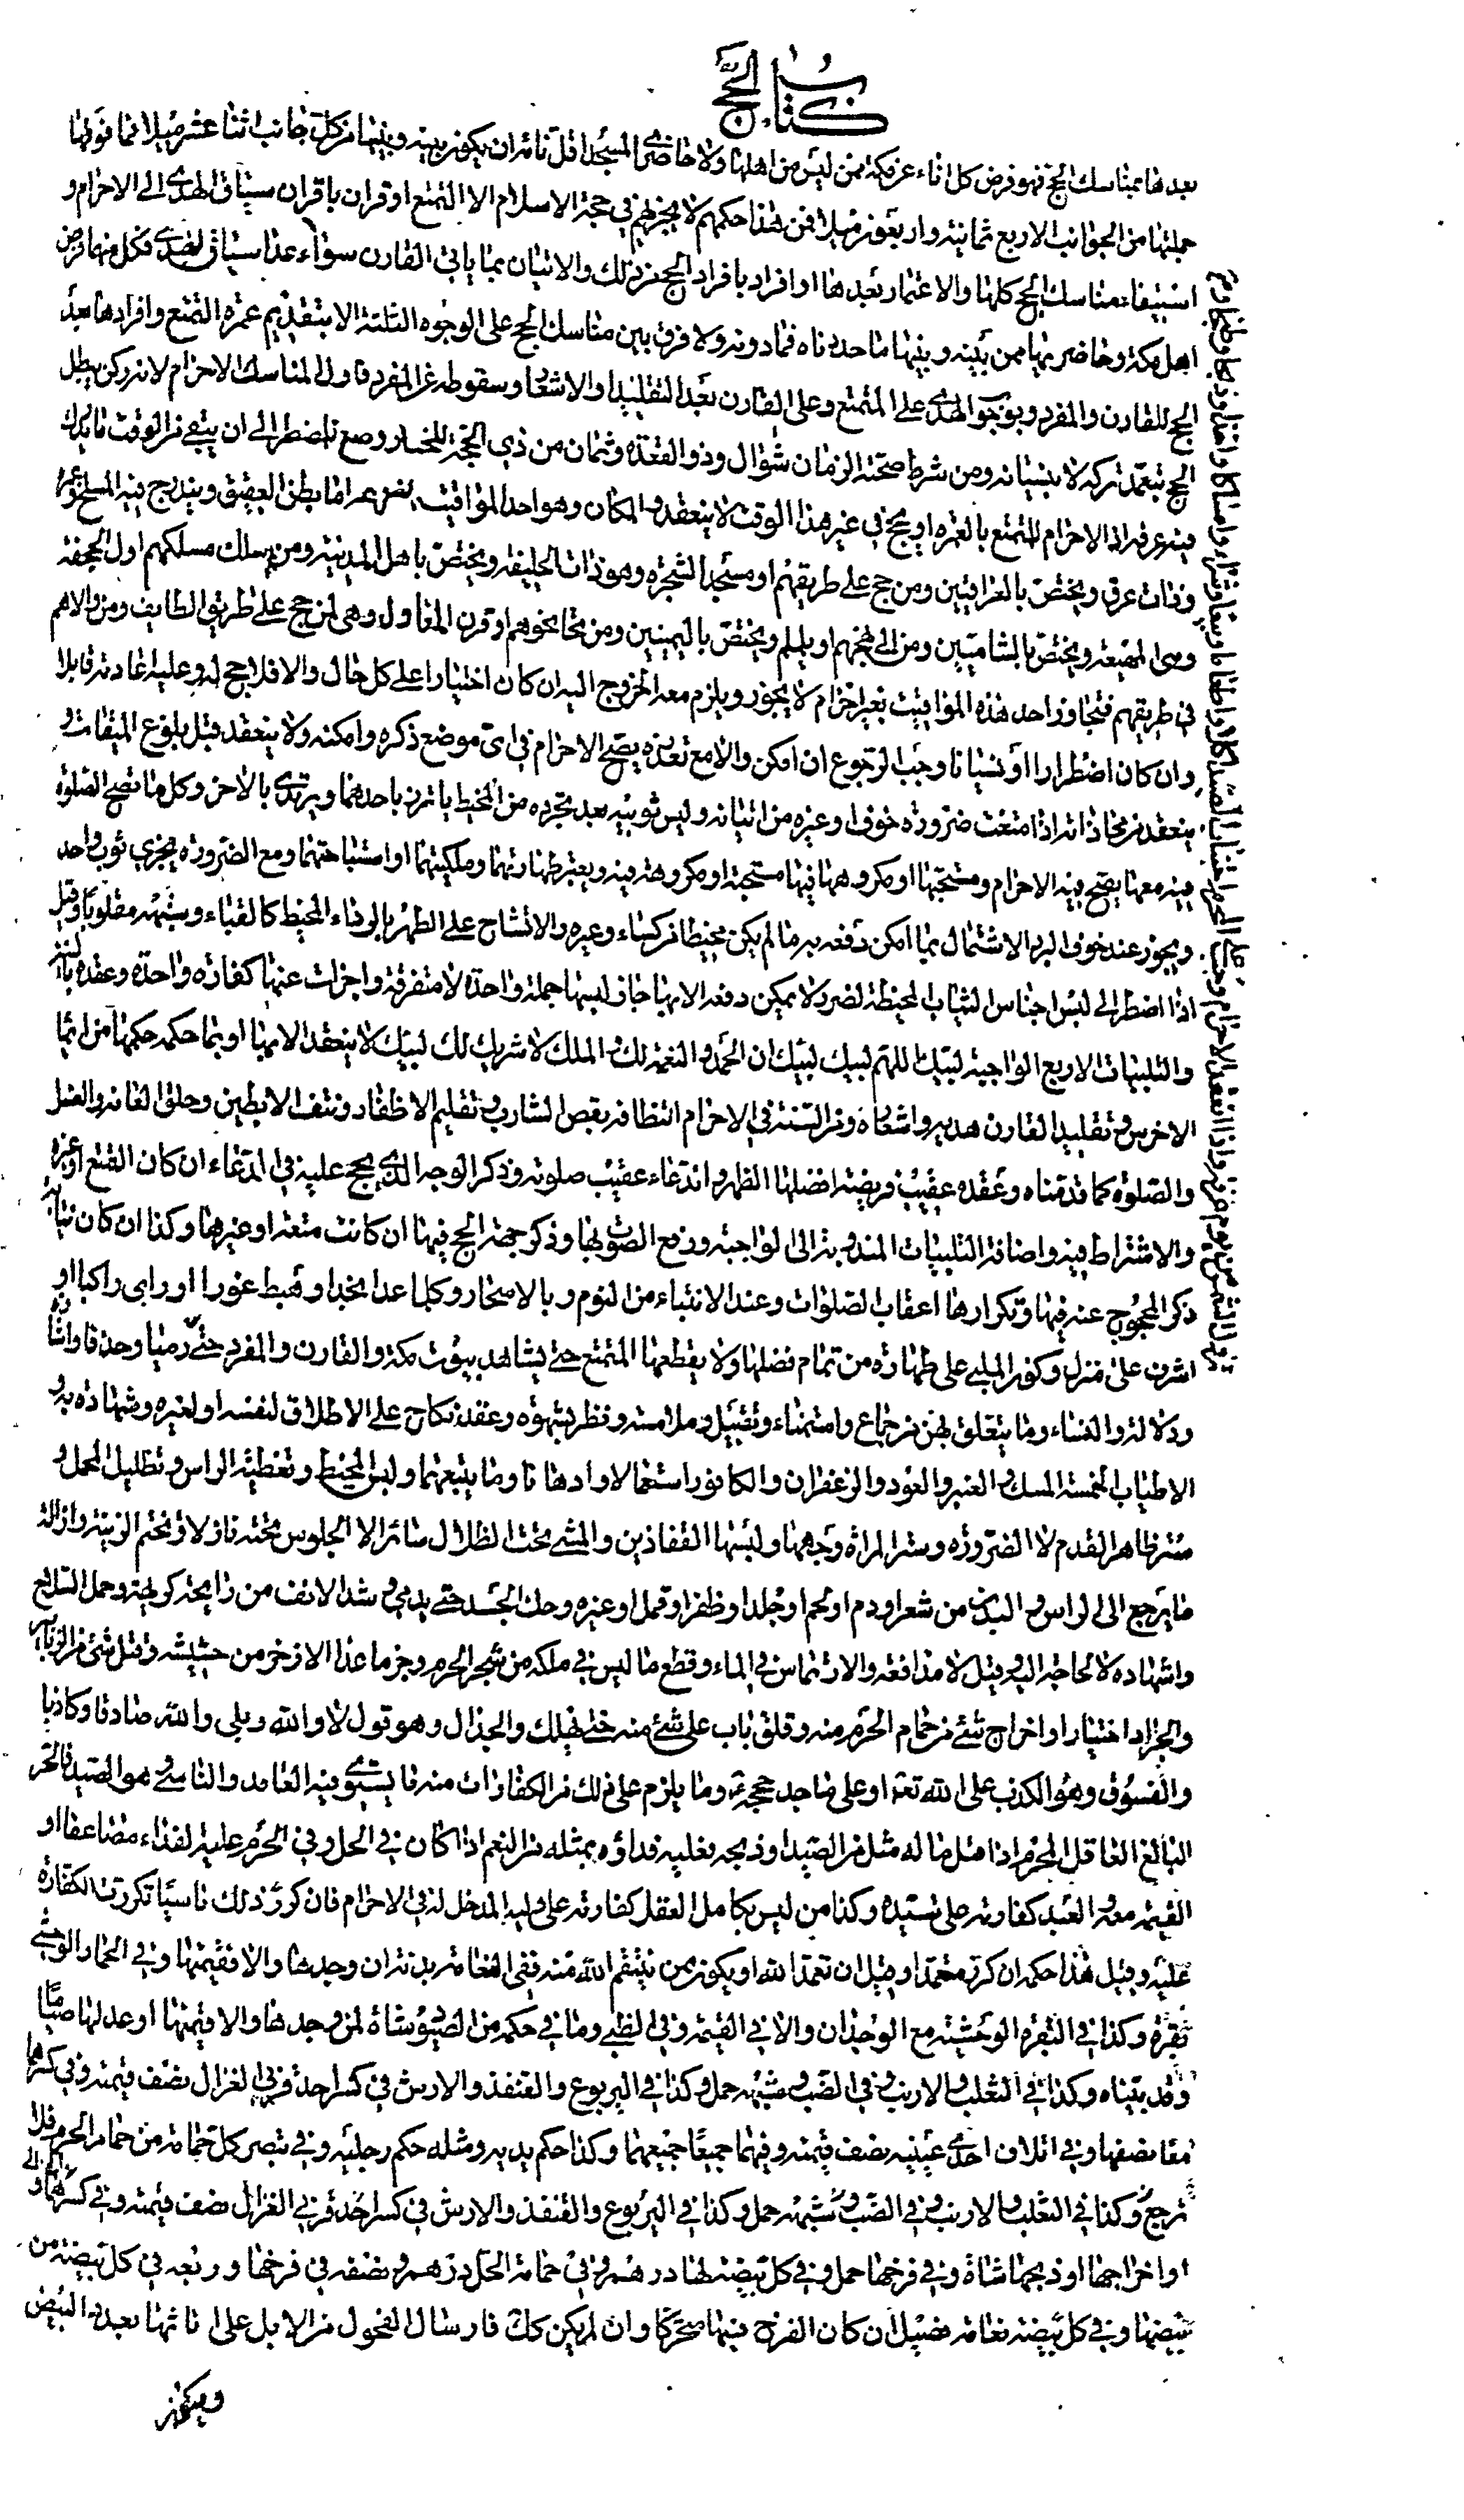 كتاب الحج
بعدها بمناسك الحج فهو فرض كل ناء عن مكة ممن ليس من اهلها ولا حاضري المسجد اقل نائه ان يكون بينه وبينها من كل جانب اثنا عشر ميلا فما فوقها
جملتها من الجوانب الاربع ثمانية واربعون ميلا فمن هذا حكمهم لا يجزيهم في حجة الاسلام الا التمتع او قران باقران سياق الهدي الى الاحرام و
استيفاء مناسك الحج كلها والاعتمار بعدها او افراد بافراد الحج من ذلك والاتيان بما ياتي القارن سواء عدا سياق الهدي فكل منهما فرض
اهل مكة وحاضريها ممن بينه وبينها ما حددناه فما دونه ولا فرق بين مناسك الحج على الوجوه الثلثة الا بتقديم عمرة التمتع وافرادها بعد
الحج للقارن والمفرد وبوجوب الهدي على المتمتع وعلى القارن بعد التقليد او الاشعار وسقوطه عن المفرد فاول المناسك الاحرام لانه ركن يبطل
الحج بتعمد تركه لا بنسيانه ومن شرط صحته الزمان شوال وذو القعدة وثمان من ذي الحجة للمختار وصح للمضطر الى ان يبقى من الوقت ما يدرك
فيه عرفة اذ الاحرام للتمتع بالعمرة او بحج في غير هذا الوقت لا ينعقد والمكان وهو احد المواقيت اما بطن العقيق ويندرج فيه المسلخ وغمرة
وذات عرق ويختص بالعراقيين ومن حج على طريقهم او مسجد الشجرة وهو ذات الحليفة ويختص باهل المدينة ومن يسلك مسلكهم او الجحفة
وهي المهيعة ويختص بالشاميين ومن الى نهجهم او يلملم ويختص باليمنيين ومن نحا نحوهم او قرن المنازل وهي لمن حج على طريق الطايف ومن والاهم
في طريقهم فتجاوز احد هذه المواقيت بغير احرام لا يجوز ويلزم معه الخروج اليه ان كان اختيارا على كل حال والا فلا حج له وعليه اعادته قابلا
وان كان اضطرارا او نسيانا وجب الرجوع ان امكن والا مع تعذره يصح الاحرام في اي موضع ذكره وامكنه ولا ينعقد قبل بلوغ الميقات و
ينعقد من محاذاته اذا منعت ضرورة خوف او غيره من اتيانه ولبس ثوبيه بعد تجرده من المخيط ياتزر باحدهما ويرتدي بالاخر وكل ما تصح الصلوة
فيه معها يصح فيه الاحرام ومستحبها او مكروهها فيها مستحبة او مكروهة فيه ويعتبر طهارتهما وملكيتهما او استباحتهما ومع الضرورة يجزي ثوب واحد
ويجوز عند خوف البرد الاشتمال بما امكن دفعه به ما لم يكن مخيطا من كساء وغيره والاتشاح على الظهر بالرداء المخيط كالقباء وشبهه مقلوبا وقيل
اذا اضطر الى لبس اجناس الثياب المخيطة لضرر لا يمكن دفعه الا بها جاز لبسها جملة واحدة لا متفرقة واجزات عنها كفارة واحدة وعقده بالنية
والتلبيات الاربع الواجبة لبيك اللهم لبيك لبيك ان الحمد والنعمة لك والملك لا شريك لك لبيك لا ينعقد الا بها او بما حكمه حكمها من ايماء
الاخرس وتقليد القارن هديه واشعاره ومن السنة في الاحرام النظافة بقص الشارب وتقليم الاظفار ونتف الابطين وحلق العانة والغسل
والصلوة كما قدمناه وعقده عقيب فريضة افضلها الظهر والدعاء عقيب صلوته وذكر الوجه الذي يحج عليه في الدعاء ان كان التمتع او غيره
والاشتراط فيه واضافة التلبيات المندوبة الى الواجبة ورفع الصوت بها وذكر جهة الحج فيها ان كانت متعة او غيرها وكذا ان كان نيابة
ذكر المحجوج عنه فيها وتكرارها اعقاب الصلوات وعند الانتباه من النوم وبالاسحار وكلما علا نجدا وهبط غورا او راى راكبا او
اشرف على منزل وكون الملبي على طهارة من تمام فضلها ولا يقطعها المتمتع حتى يشاهد بيوت مكة والقارن والمفرد حتى
ودلالة والنساء وما يتعلق بهن من جماع واستمناء وتقبيل وملامسة ونظر بشهوة وعقد نكاح على الاطلاق لنفسه او لغيره وشهادة به و
الاطياب الخمسة المسك والعنبر والعود والزعفران والكافور استعمالا وادهانا وما يتبعهما ولبس المخيط وتغطية الراس وتظليل المحمل و
ستر ظاهر القدم لا الضرورة وستر المراة وجهها ولبسها القفازين والمشي تحت الظلال سائرا لا الجلوس تحته نازلا وتختم الزينة وازالة
ما يرجع الى الراس والبدن من شعر او دم او لحم او جلد او ظفر او قمل او غيره وحك الجسد حتى يدمي وشد الانف من رايحة كريهة وحمل السلاح
واشهاده لا لحاجة اليه وقيل لا مدافعة والارتماس في الماء وقطع ما ليس في ملكه من شجر الحرم وجز ما عدا الاذخر من حشيشه وقتل شيء من الزنابير
والجراد اختيارا واخراج شيء من حمام الحرم منه وغلق باب على شيء منه حتى يهلك والجدال وهو قول لا والله وبلى والله صادقا وكاذبا
والفسوق وهو الكذب على الله تعالى او على احد حججه وما يلزم على ذلك من الكفارات منه ما يستوي فيه العامد والناسي وهو الصيد فالحر
البالغ العاقل المحرم اذا قتل ما له مثل من الصيد او ذبحه فعليه فداؤه بمثله من النعم اذا كان في الحل وفي الحرم عليه الفداء مضاعفا او
القيمة معه والعبد كفارته على سيده وكذا من ليس بكامل العقل كفارته على وليه المدخل له في الاحرام فان كرر ذلك ناسيا تكررت الكفارة
عليه وقيل هذا حكمه ان كرره متعمدا وقيل ان تعمد الله او يكون ممن ينتقم الله منه ففي النعامة بدنة ان وجدها والا فقيمتها وفي الحمار الوحشي
بقرة وكذا في البقرة الوحشية مع الوجدان والا في القيمة وفي الظبي وما في حكمه من الصيود شاة لمن وجدها والا قيمتها او عدلها صياما
وقد بيناه وكذا في الثعلب والارنب وفي الضب وشبهه حمل وكذا في اليربوع والقنفذ والارش في كسر احد قرني الغزال نصف قيمته وفي كسرهما
معا نصفها وفي اتلاف احدى عينيه نصف قيمته وفيهما جميعا جميعها وكذا حكم يديه ومثله حكم رجليه وفي كل حمامة من حمام الحرم
ترجع وكذا في الثعلب والارنب وفي الضب وشبهه حمل وكذا في اليربوع والقنفذ والارش في كسر احد قرني الغزال نصف قيمته وفي كسرهما و
او اخراجها او ذبحها شاة وفي فرخها حمل وفي كل بيضة لها درهم وفي حمامة الحل درهم ونصفه في فرخها وربعه في كل بيضة من
بيضها وفي كل بيضة نعامة فصيل ان كان الفرخ فيها متحركا وان لم يكن كك فارسال الفحول من الابل على اناثها بعدد البيض
ويكون